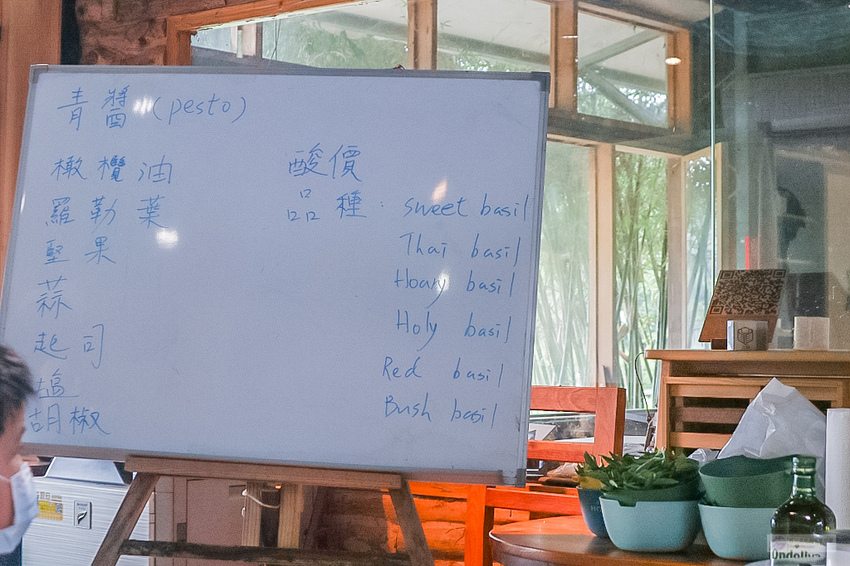 青醬 (pesto)
橄欖油
羅勒葉
堅果
蒜
起司
塩
胡椒
酸價
品種: sweet basil
Thai basil
Hoary basil
Holy basil
Red basil
Bush basil